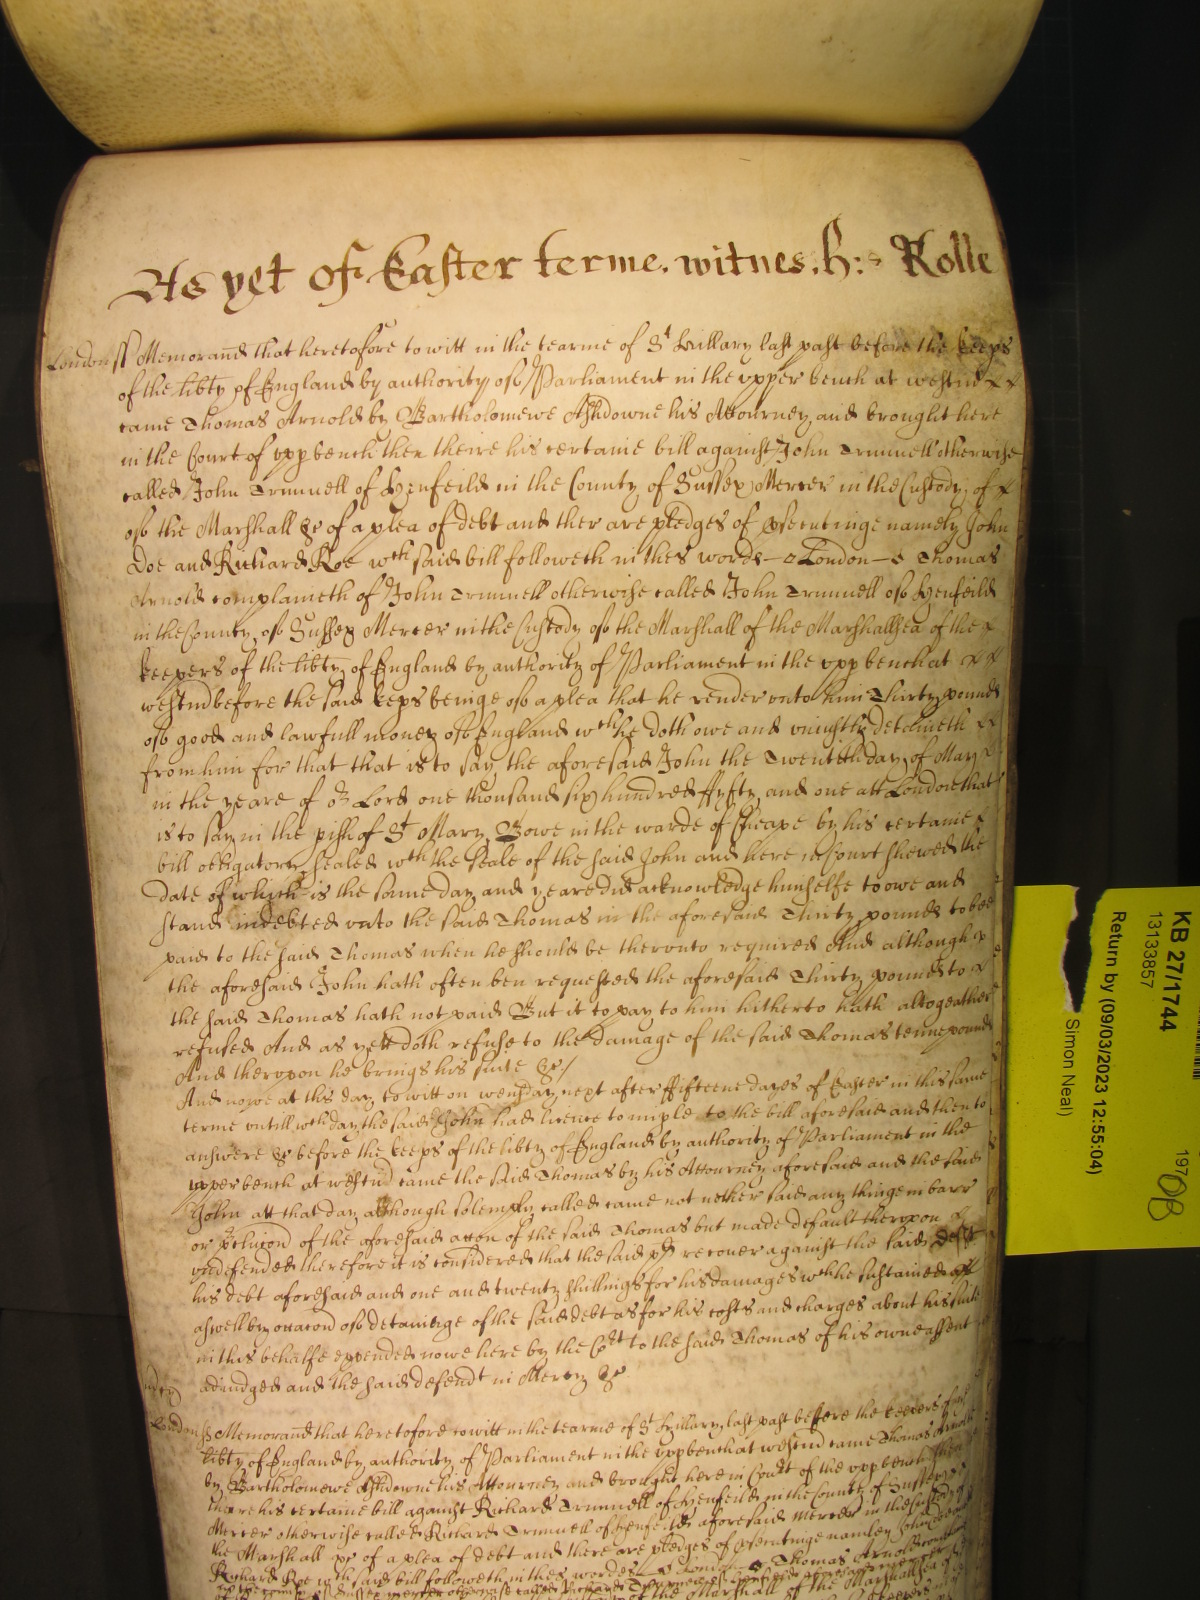 As yet of Easter terme. witnes. H: Rolle
London ss Memorand that heretofore to witt in the tearme of St Hillary last past before the keeps
of the libty of England by authority of Parliament in the upper bench at westmr
came Thomas Arnold by Bartholomewe Ashdowne his Attourney and brought here
in the Court of upp bench then theire his certaine bill against John Trunnell otherwise
called John Trunnell of Henfeild in the County of Sussex Mercer in the Custody of
of the Marshall &c of a plea of debt and ther are pledges of psecutinge namely John
Doe and Richard Roe wch said bill followeth in thes words London Thomas
Arnold complaineth of John Trunnell otherwise called John Trunnell of Henfeild
in the County of Sussex Mercer in the Custody of the Marshall of the Marshallsea of the
keepers of the libty of England by authority of Parliament in the upp bench at
westmr before the said keeps beinge of a plea that he render unto him Thirty pounds
of good and lawfull money of England wch he doth owe and uniustly detaineth
from him for that that is to say the aforesaid John the Twentith day of May
in the yeare of or Lord one thousand six hundred ffyfty and one att London that
is to say in the pish of St Mary Bowe in the warde of Cheape by his certaine
bill obligatory sealed wth the seale of the said John and here in Court shewed the
date of which is the same day and yeare did acknowledge himselfe to owe and
stand indebted unto the said Thomas in the aforesaid Thirty pounds to bee
paid to the said Thomas when he should be therunto required And although
the aforesaid John hath often ben requested the aforesaid Thirty pounds to
the said Thomas hath not paid But it to pay to him hitherto hath altogeather
refused And as yett doth refuse to the damage of the said Thomas tenne pounds
And therupon he brings his suite &c/
And nowe at this day to witt on wensday next after ffifteene dayes of Easter in this same
terme untill wch day the said John had licence to imple to the bill aforesaid and then to
answere &c before the keeps of the libty of England by authority of Parliament in the
upper bench at westmr came the said Thomas by his Attourney aforesaid and the said
John att that day although solemply called came not nether said any thinge in barr
or pclucon of the aforesaid accon of the said Thomas but made default therupon
undefended therefore it is considered that the said plt recover against the said deft
his debt aforesaid and one and twenty shillings for his damages wch he sustained
aswell by occacon of detaininge of the said debt as for his costs and charges about his suite
in this behalfe expended nowe here by the Cort to the said Thomas of his owne assent
adiudged and the said defendt in Mercy &c
London ss Memorand that heretofore to witt in the tearme of St Hillary last past before the keepers of the
libty of England by authority of Parliament in the upp bench at westmr came Thomas Arnold
by Bartholomewe Ashdowne his Attourney and brought here in Court of the upp bench then
theare his certaine bill against Richard Trunnell of Henfeild in the County of Sussex
Mercer otherwise called Richard Trunnell of Henfeild aforesaid Mercer in the Custody of
the Marshall &c of a plea of debt and there are pledges of psecutinge namley John Doe and
Richard Roe wch said bill followeth in thes wordes London Thomas Arnold
KB 27/1744
13133857
Return by (09/03/2023 12:55:04)
Simon Neal)
197